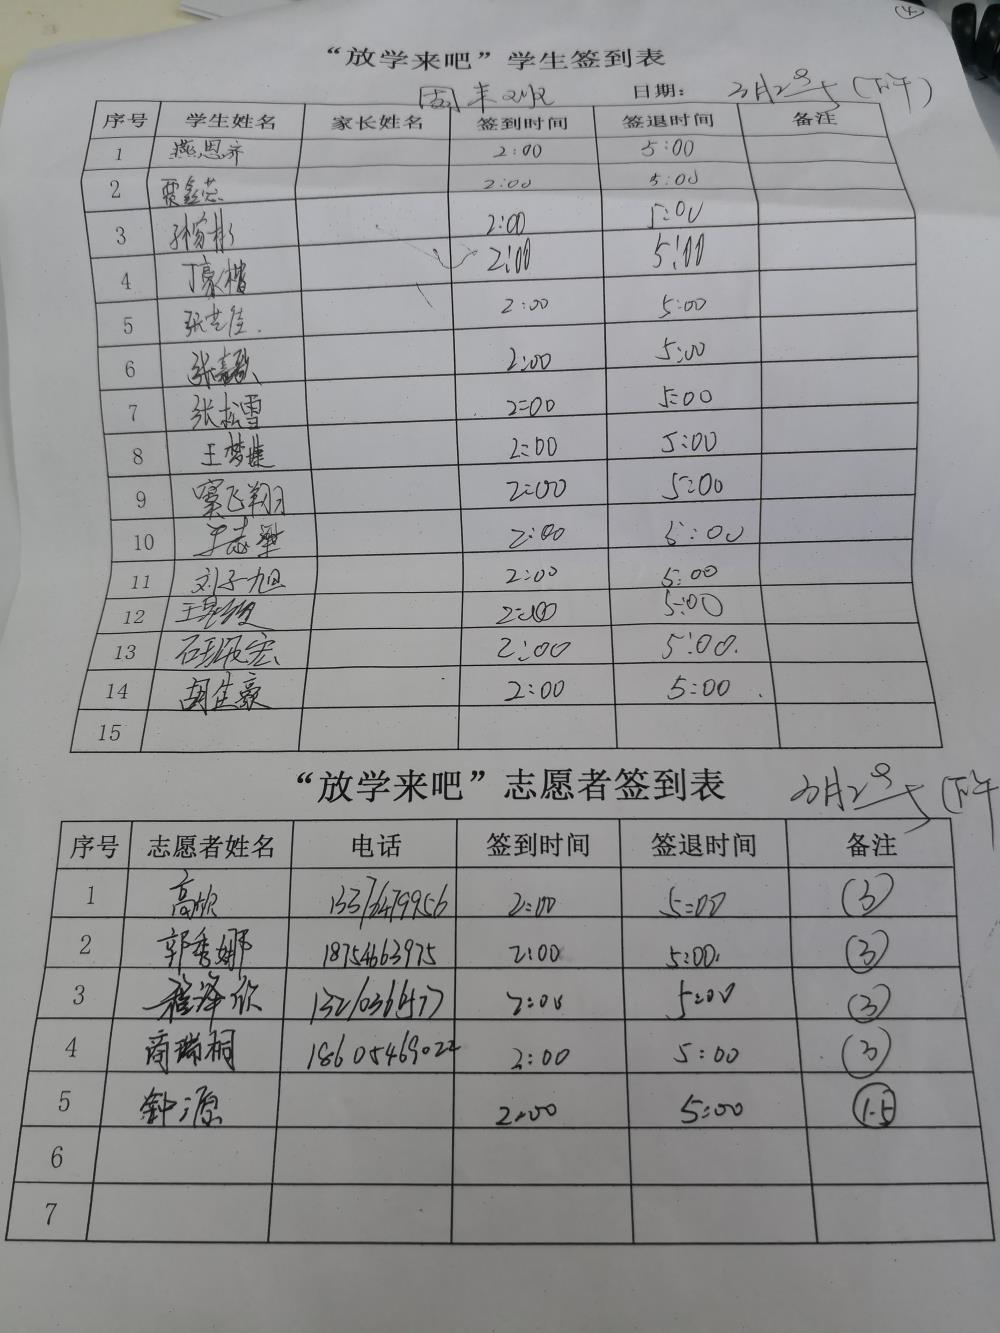 ④
“放学来吧”学生签到表
日期： 2号 (下午)
序号 学生姓名 家长姓名 签到时间 签退时间 备注
1 燕思齐 2:00 5:00
2 贾鑫蕊 2:00 5:00
3 彬 2:00 5:00
4 丁豪楷 2:00 5:00
5 张芝佳 2:00 5:00
6 张嘉 2:00 5:00
7 张松雪 2:00 5:00
8 王梦婕 2:00 5:00
9 窦飞翔 2:00 5:00
10 志 2:00 5:00
11 刘子旭 2:00 5:00
12 王 2:00 5:00
13 石 宏 2:00 5:00
14 胡佳豪 2:00 5:00
15
“放学来吧”志愿者签到表
月2号 (下午
序号 志愿者姓名 电话 签到时间 签退时间 备注
1 高欣 13373479956 2:00 5:00 (3)
2 郭秀娜 18754663975 2:00 5:00 (3)
3 程泽欣 2:00 5:00 (3)
4 商瑞桐 18605469022 2:00 5:00 (3)
5 钟源 2:00 5:00 (1-5)
6
7